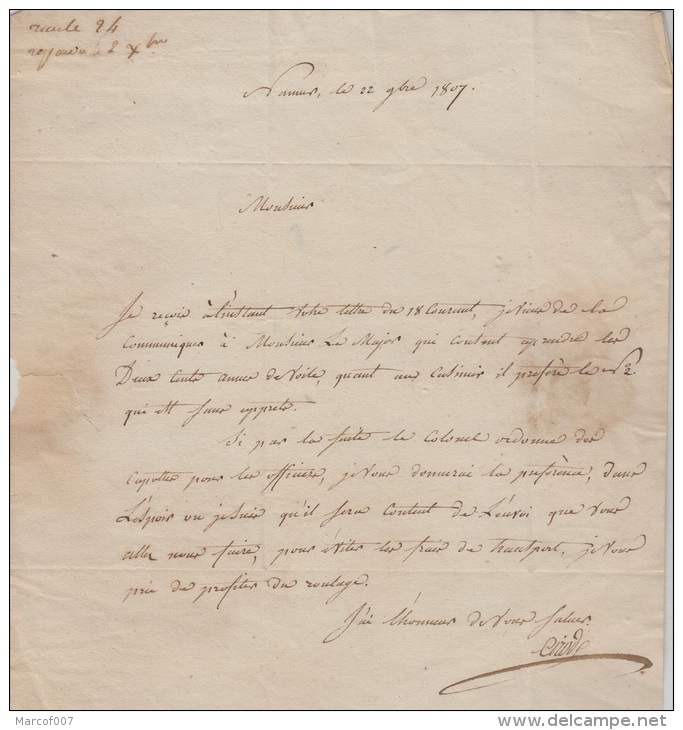 recule 24
repondu le 2 Xbre
Namur, le 22 9bre 1807.
Monsieur
Je reçois à l'instant votre lettre du 18 Courant, je viens de la
Communiquer à Monsieur Le Major qui consent a prendre les
Deux Cents aunes de Voile, quant au Casimir il préfère le N° 2.
qui est sans apprets.
Si par la suite le Colonel ordonne des
Capottes pour les officiers, je Vous donnerai la préférence, dans
L'espoir ou je suis qu'il sera Content de L'envoi que Vous
allez nous faire, pour éviter les frais de transport, je Vous
prie de profiter du roulage.
J'ai l'honneur de Vous Saluer.
Marcof007
delcampe.net